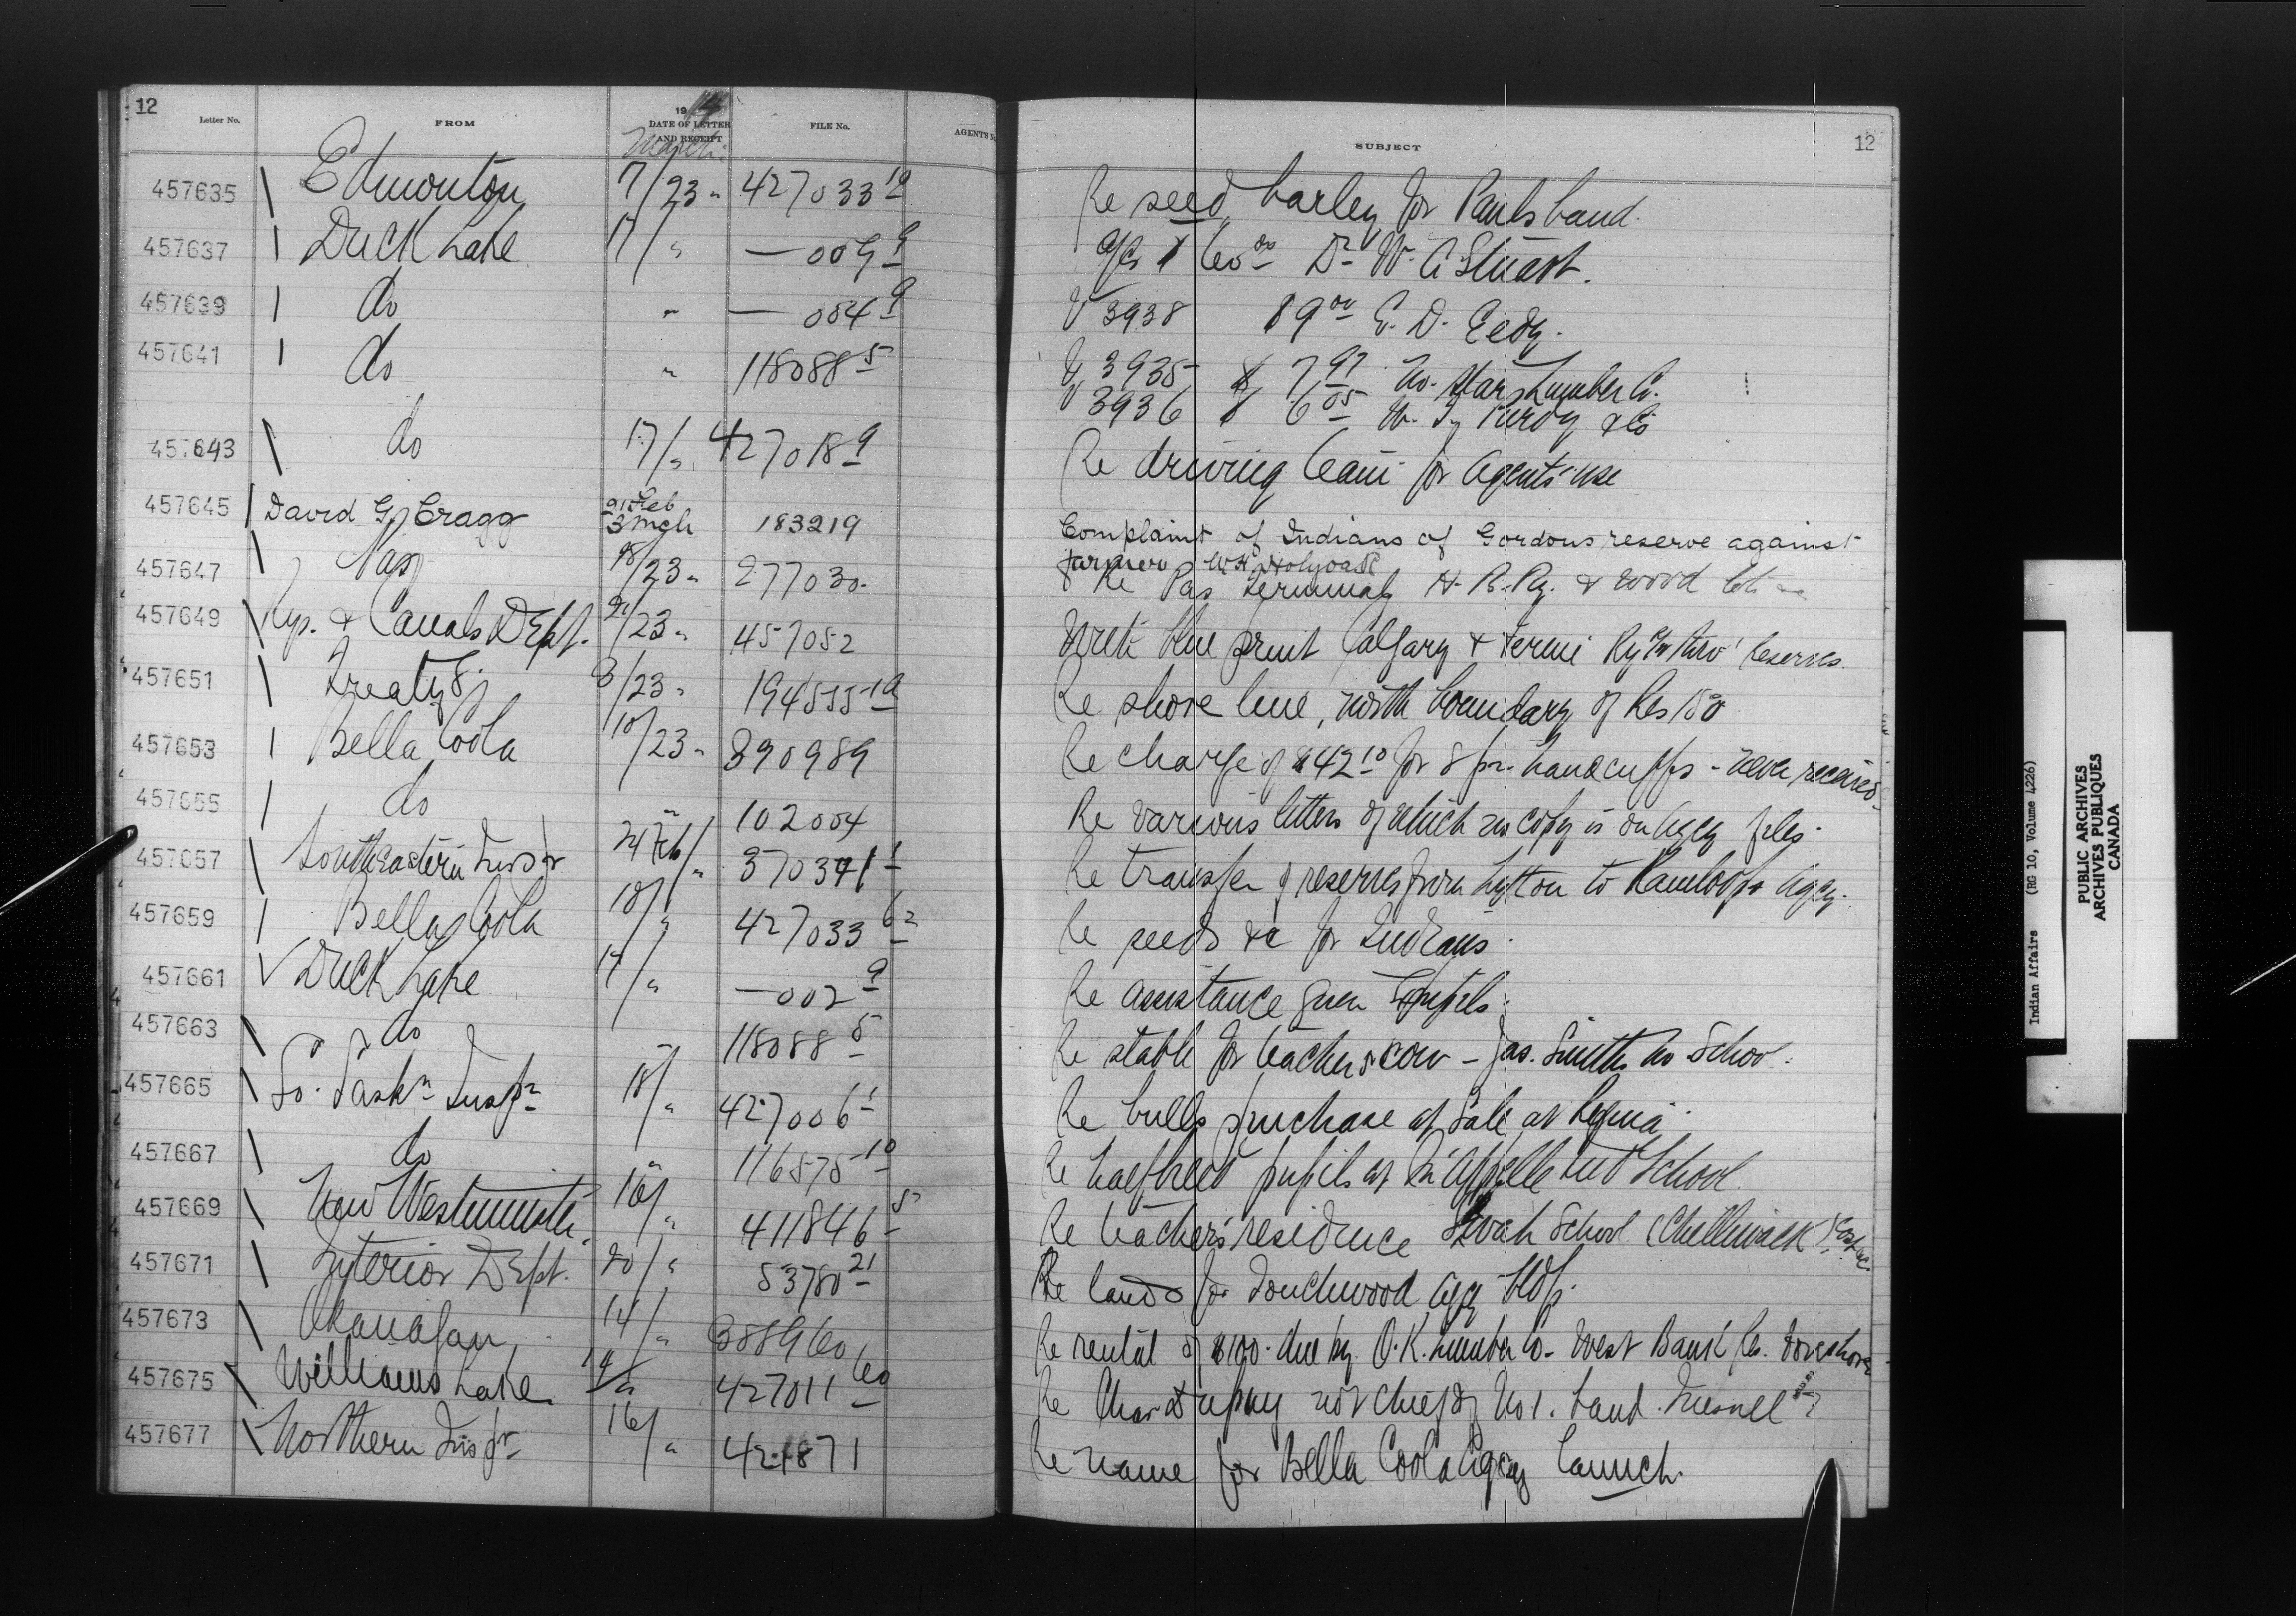 12
Letter No. FROM 1914 DATE OF LETTER AND RECEIPT FILE No. AGENT'S No.
March
SUBJECT 12
457635 Edmonton 17/23 " 427033 10 Re seed barley for Pauls band.
457637 Duck Lake 17/ " — 009 9 Dr W. A. Stuart.
457639 do " — 004 9 V 3938 $9 00 E. D. Eedy.
457641 do " 118088 5 V 3935 $ 7 97 No. Star Lumber Co.
V 3936 $ 6 05 & Co
457643 do 17/ " 427018 9 Re driving team for Agents' use
457645 David G. Cragg 21 Feb 3 Mch 183219 Complaint of Indians of Gordons reserve against
farmer W.H. Holyoak
457647 Pas 18/23 " 277030 Re Pas Terminals H. B. Ry. & wood lots
457649 Rys. & Canals Dept. 21/23 " 457052 blue print Calgary & Fernie Ry Co thro' Reserves
457651 Treaty 8 3/23 " 194535-10 Re shore line, north boundary of Res 150
457653 Bella Coola 10/23 " 390989 Re charge of $42 10 for 8 pr. handcuffs - never received
457655 do " 102004 Re various letters of which no copy is on Agcy files.
457657 Southeastern Inspr 21 Feb/ " 370371 1 Re transfer of reserves from Lytton to Kamloops Agcy.
457659 Bella Coola 10/ " 427033 62 Re seeds &c for Indians.
457661 Duck Lake 17/ " — 002 9 Re assistance given
457663 do " 118088 5 Re stable for teachers cow - Jas. Smiths No School.
457665 So. Sask n Insp r 18/ " 427006 1 Re bulls purchase at Sale at Regina
457667 do " 116575 10 Re halfbreed pupils at Qu'Appelle Ind School
457669 New Westminster 16/ " 411846 5 Re teachers' residence School (Chilliwack)
457671 Interior Dept. 20/ " 53780 21 Re lands for Touchwood Agcy Hdqs.
457673 Okanagan 14/ " 388960 Re rental of $100. due by O.K. Lumber Co. West Bank Res. foreshore
457675 Williams Lake 14/ " 427011 60 Re not chief of No 1. band. Quesnel
457677 Northern Inspr 16/ " 421871 Re name for Bella Coola Agcy launch.
Indian Affairs (RG 10, Volume 4226)
PUBLIC ARCHIVES
ARCHIVES PUBLIQUES
CANADA